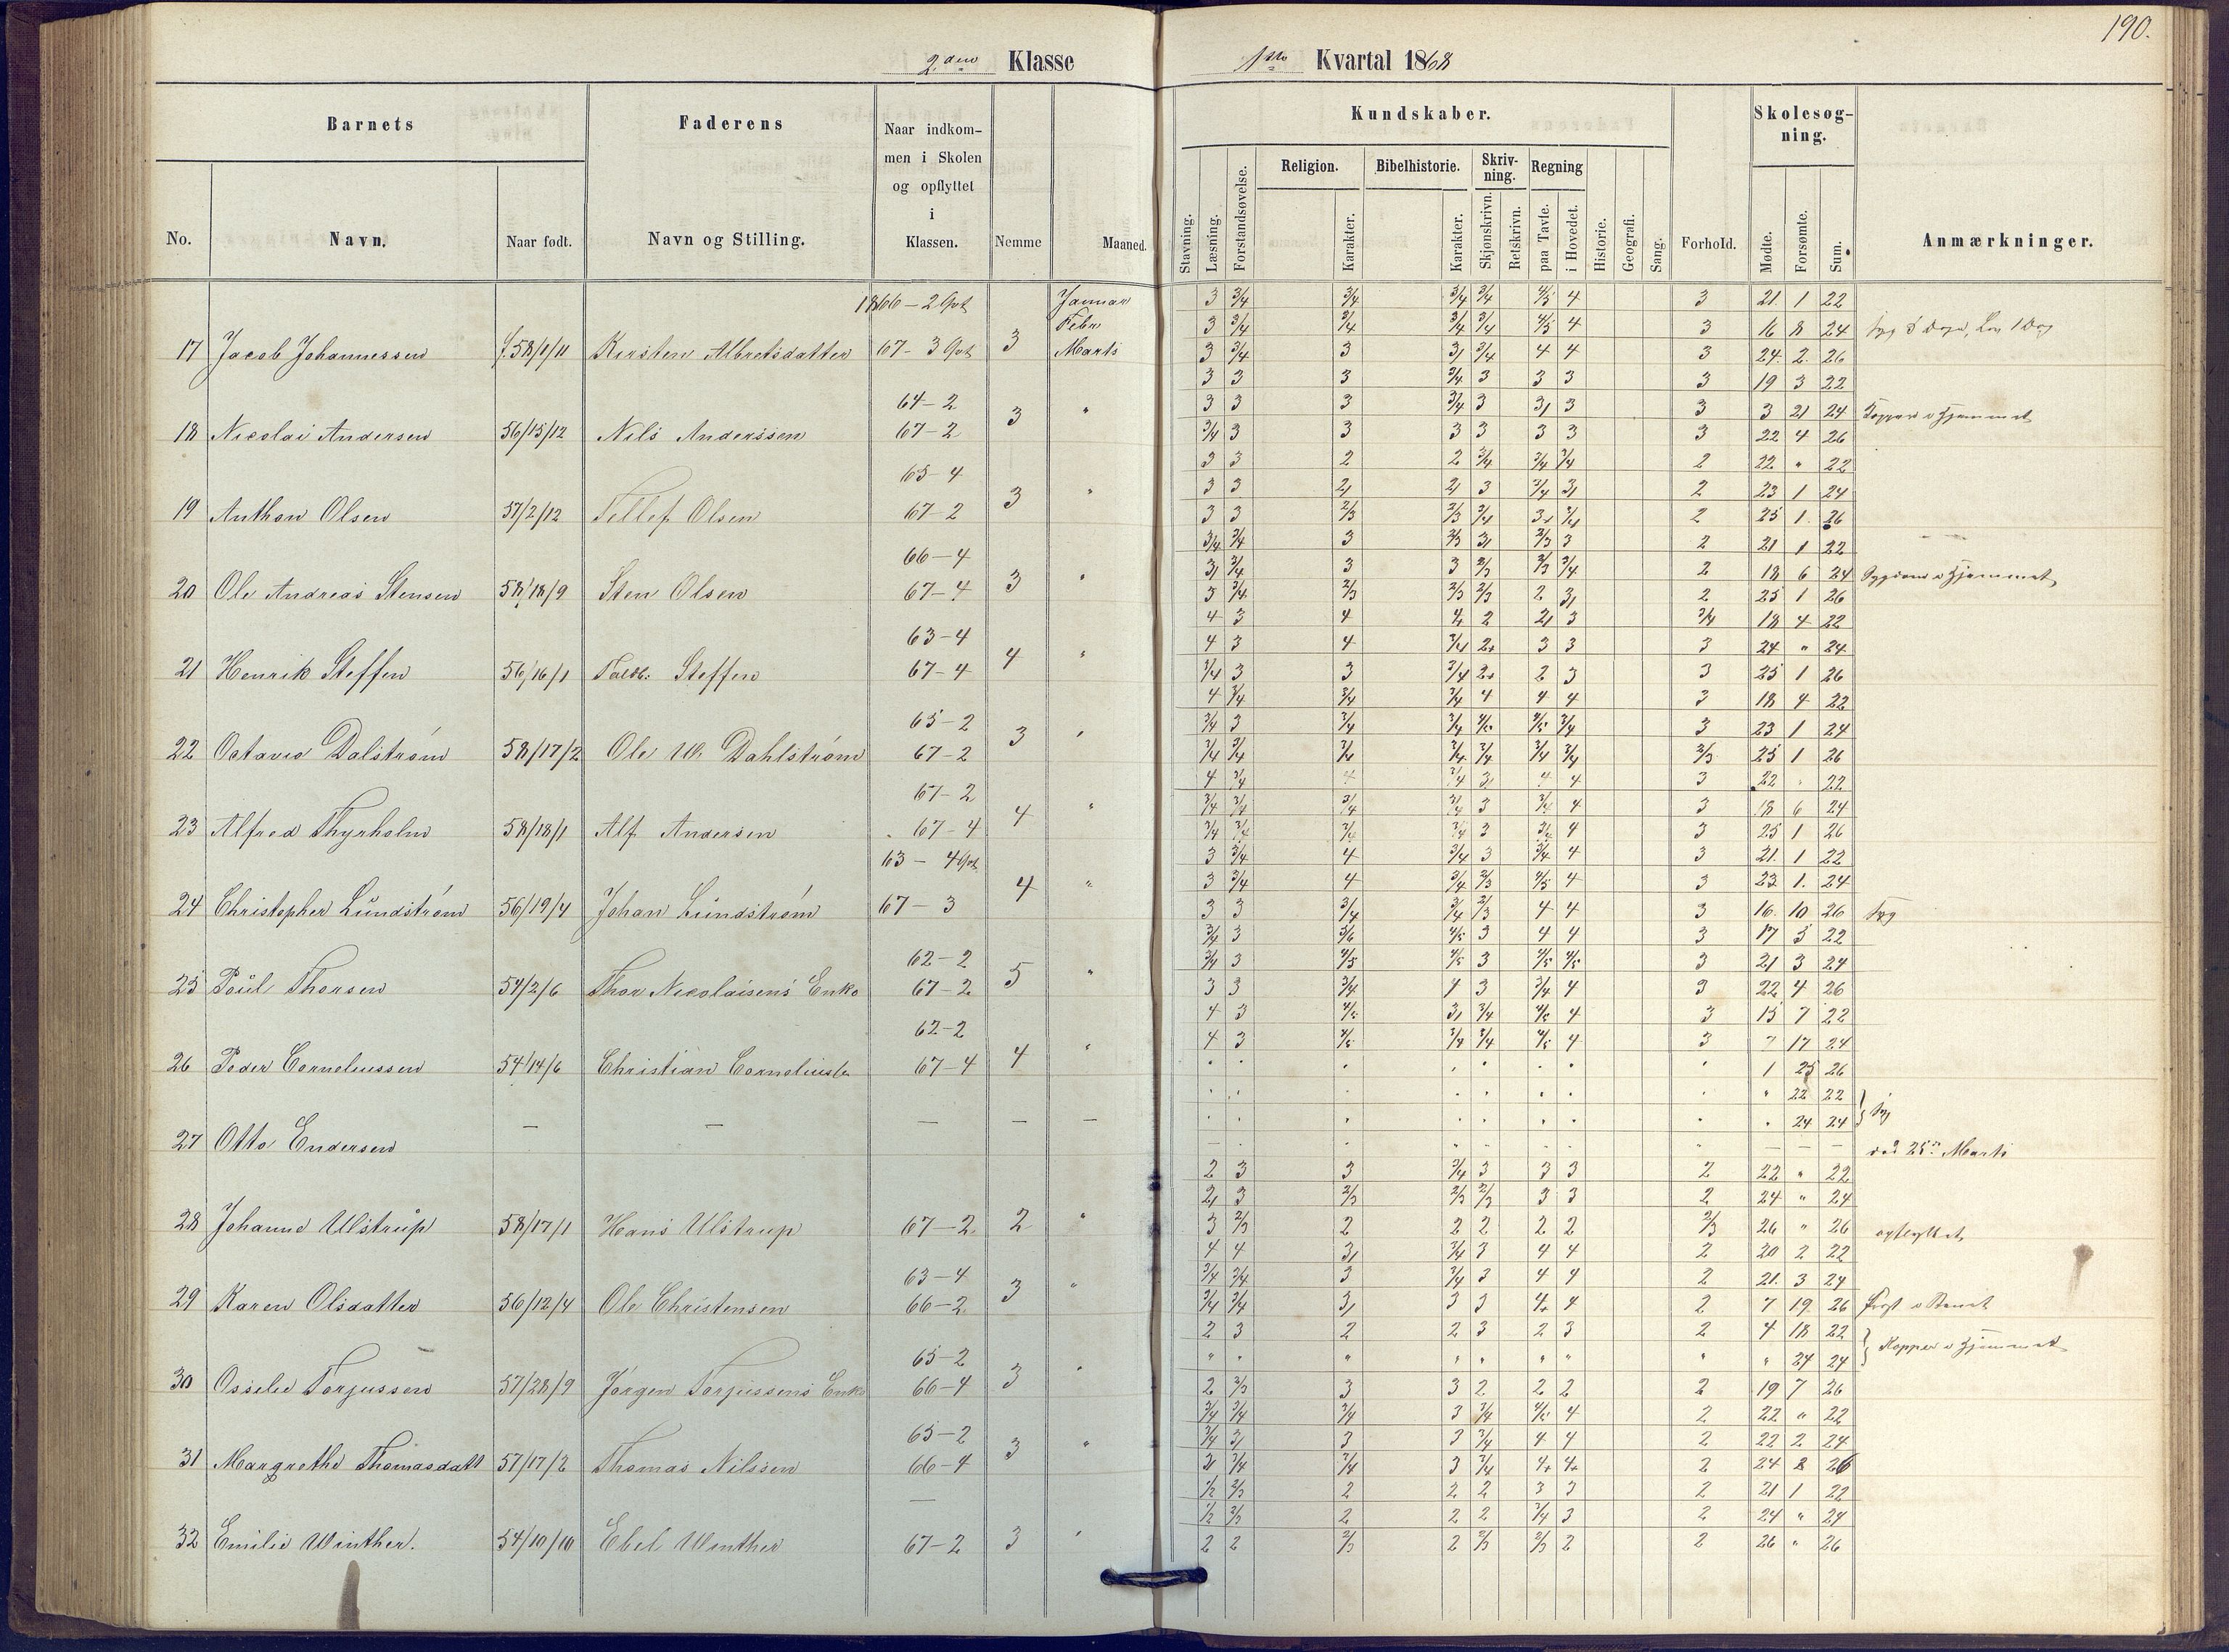 190.
2den Klasse
1ste Kvartal 1868
Barnets
Faderens
Naar indkommen i Skolen og opflyttet i Klassen.
Nemme
Maaned.
Kundskaber.
Forhold.
Skolesøgning.
Anmærkninger.
No.
Navn.
Naar født.
Navn og Stilling.
Stavning.
Læsning.
Forstandsøvelse.
Religion.
Karakter.
Bibelhistorie.
Karakter.
Skrivning.
Skjønskrivn.
Retskrivn.
Regning
paa Tavle.
i Hovedet.
Historie.
Geografi.
Sang.
Mødte.
Forsømte.
Sum.
1866 - 2 Qvt Januar 3 3/4 3/4 3/4 3/4 4/5 4 3 21 1 22
Febr 3 3/4 3/4 3/4 3/4 4/5 4 3 16 8 24
17 Jacob Johannessen f. 58/1/11 Kirsten Albretsdatter 67 - 3 Qvt 3 Marts 3 3/4 3 3/4 4 4 3 24 2 26
3 3 3 3/4 3 3 3 3 19 3 22
64 - 2 3 3 3 3/4 3 3 3 3 21 24 Kopper i Hjemmet
18 Nicolai Andersen 56/15/12 Nils Anderssen 67 - 2 3 3/4 3 3 3 3 3 3 3 22 4 26
3 3 2 2 3/4 3/4 3/4 2 22 " 22
65 - 4 3 3 3 3/4 2 23 1 24
19 Anthon Olsen 57/2/12 Tellef Olsen 67 - 2 3 3 3 2/3 2/3 3/4 2 25 1 26
3/4 3/4 3 2/3 2/3 3 2 21 1 22
66 - 4 3/4 3 3 2/3 2/3 3/4 2 18 6 24 Sygdom i Hjemmet
20 Ole Andreas Stensen 58/18/9 Sten Olsen 67 - 4 3 3 3/4 2/3 2/3 2/3 2 2 25 1 26
4 3 4 4 2 3 3/4 18 4 22
63 - 4 4 3 4 3/4 3 3 3 24 " 24
21 Henrik Steffen 56/16/1 Steffen 67 - 4 4 3/4 3 3 3/4 2 3 3 25 1 26
4 3/4 3/4 3/4 4 4 4 3 18 4 22
65 - 2 3/4 3 3/4 3/4 4/5 4/5 3/4 3 23 1 24
22 Octavio Dalstrøm 58/17/2 Ole W. Dahlstrøm 67 - 2 3 3/4 3/4 3/4 3/4 3/4 3/4 3/4 2/3 25 1 26
67 - 2 4 3/4 4 3/4 4 4 3 22 " 22
3/4 3/4 3/4 3/4 3 3/4 4 3 18 6 24
23 Alfred Thyrholm 58/18/1 Alf Andersen 67 - 4 4 3/4 3/4 3/4 3/4 3 3/4 4 3 25 1 26
63 - 4 Qvt 3 3/4 4 3/4 3 3/4 4 3 21 1 22
3 3/4 4 3/4 2/3 4/5 4 3 23 1 24
24 Christopher Lundstrøm 56/19/4 Johan Lundstrøm 67 - 3 4 3 3 3/4 3/4 2/3 4 4 3 16 10 26 Syg
3/4 3 5/6 4/5 3 4 4 3 17 5 22
62 - 2 3/4 3 4/5 4/5 3 4/5 4/5 3 21 3 24
25 Poul Thorsen 54/2/6 Thor Nicolaisens Enke 67 - 2 5 3 3 3/4 4 3 3/4 4 3 22 4 26
4 3 4/5 3/4 4/5 4 3 15 7 22
62 - 2 4 3 4/5 3/4 3/4 4/5 4 3 7 17 24
26 Peder Corneliussen 54/14/6 Christian Cornelius 67 - 4 4 1 25 26
" 22 22
" 24 24 } Syg
27 Otto Endersen — — — — — død 25de Marts
2 3 3 3/4 3 3 3 2 22 " 22
3 2/3 2/3 2/3 3 3 2 24 " 24
28 Johanne Ulstrup 58/17/1 Hans Ulstrup 67 - 2 2 3 2/3 2 2 2 2 2 2/3 26 " 26 opflyttet
4 4 3/4 3 4 4 2 20 2 22
63 - 4 3/4 3/4 3 3/4 3 4 4 2 21 3 24
29 Karen Olsdatter 56/12/4 Ole Christensen 66 - 2 3 3/4 3/4 3 3 4 4 2 7 19 26
2 3 2 2 3 2 3 2 4 18 22
65 - 2 " 24 24 } Kopper i Hjemmet
30 Osselie Torjussen 57/28/9 Jørgen Torjussens Enke 66 - 4 3 2 2/3 3 3 2 2 2 2 19 7 26
3/4 3/4 3/4 3 3/4 4/5 4 2 22 " 22
65 - 2 3/4 3 3 3/4 4 4 2 22 2 24
31 Margrethe Thomasdatt 57/17/2 Thomas Nilssen 66 - 4 3 3/4 3/4 3 3/4 4+ 4+ 2 24 2 26
1/2 2/3 2 2 2 3 3 2 21 1 22
1/2 2/3 2 2 2 3/4 3 2 24 " 24
32 Emilie Winther. 54/10/10 Ebel Winther 67 - 2 3 2 2 2/3 2 2/3 2/3 2 2 26 " 26